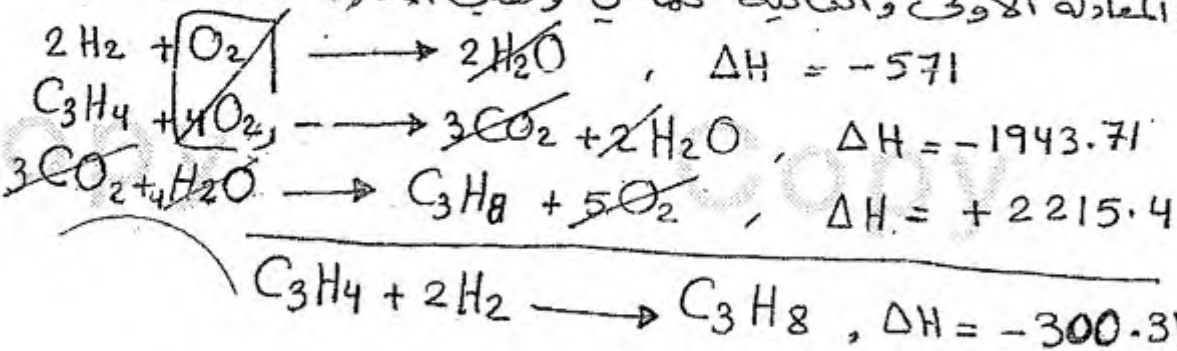 المعادلة الأولى والثانية كما هي
2H₂ + O₂ → 2H₂O , ΔH = -571
C₃H₄ + 4O₂, → 3CO₂ + 2H₂O , ΔH = -1943.71
3CO₂ + 4H₂O → C₃H₈ + 5O₂ , ΔH = +2215.4
C₃H₄ + 2H₂ → C₃H₈ , ΔH = -300.31
Copy